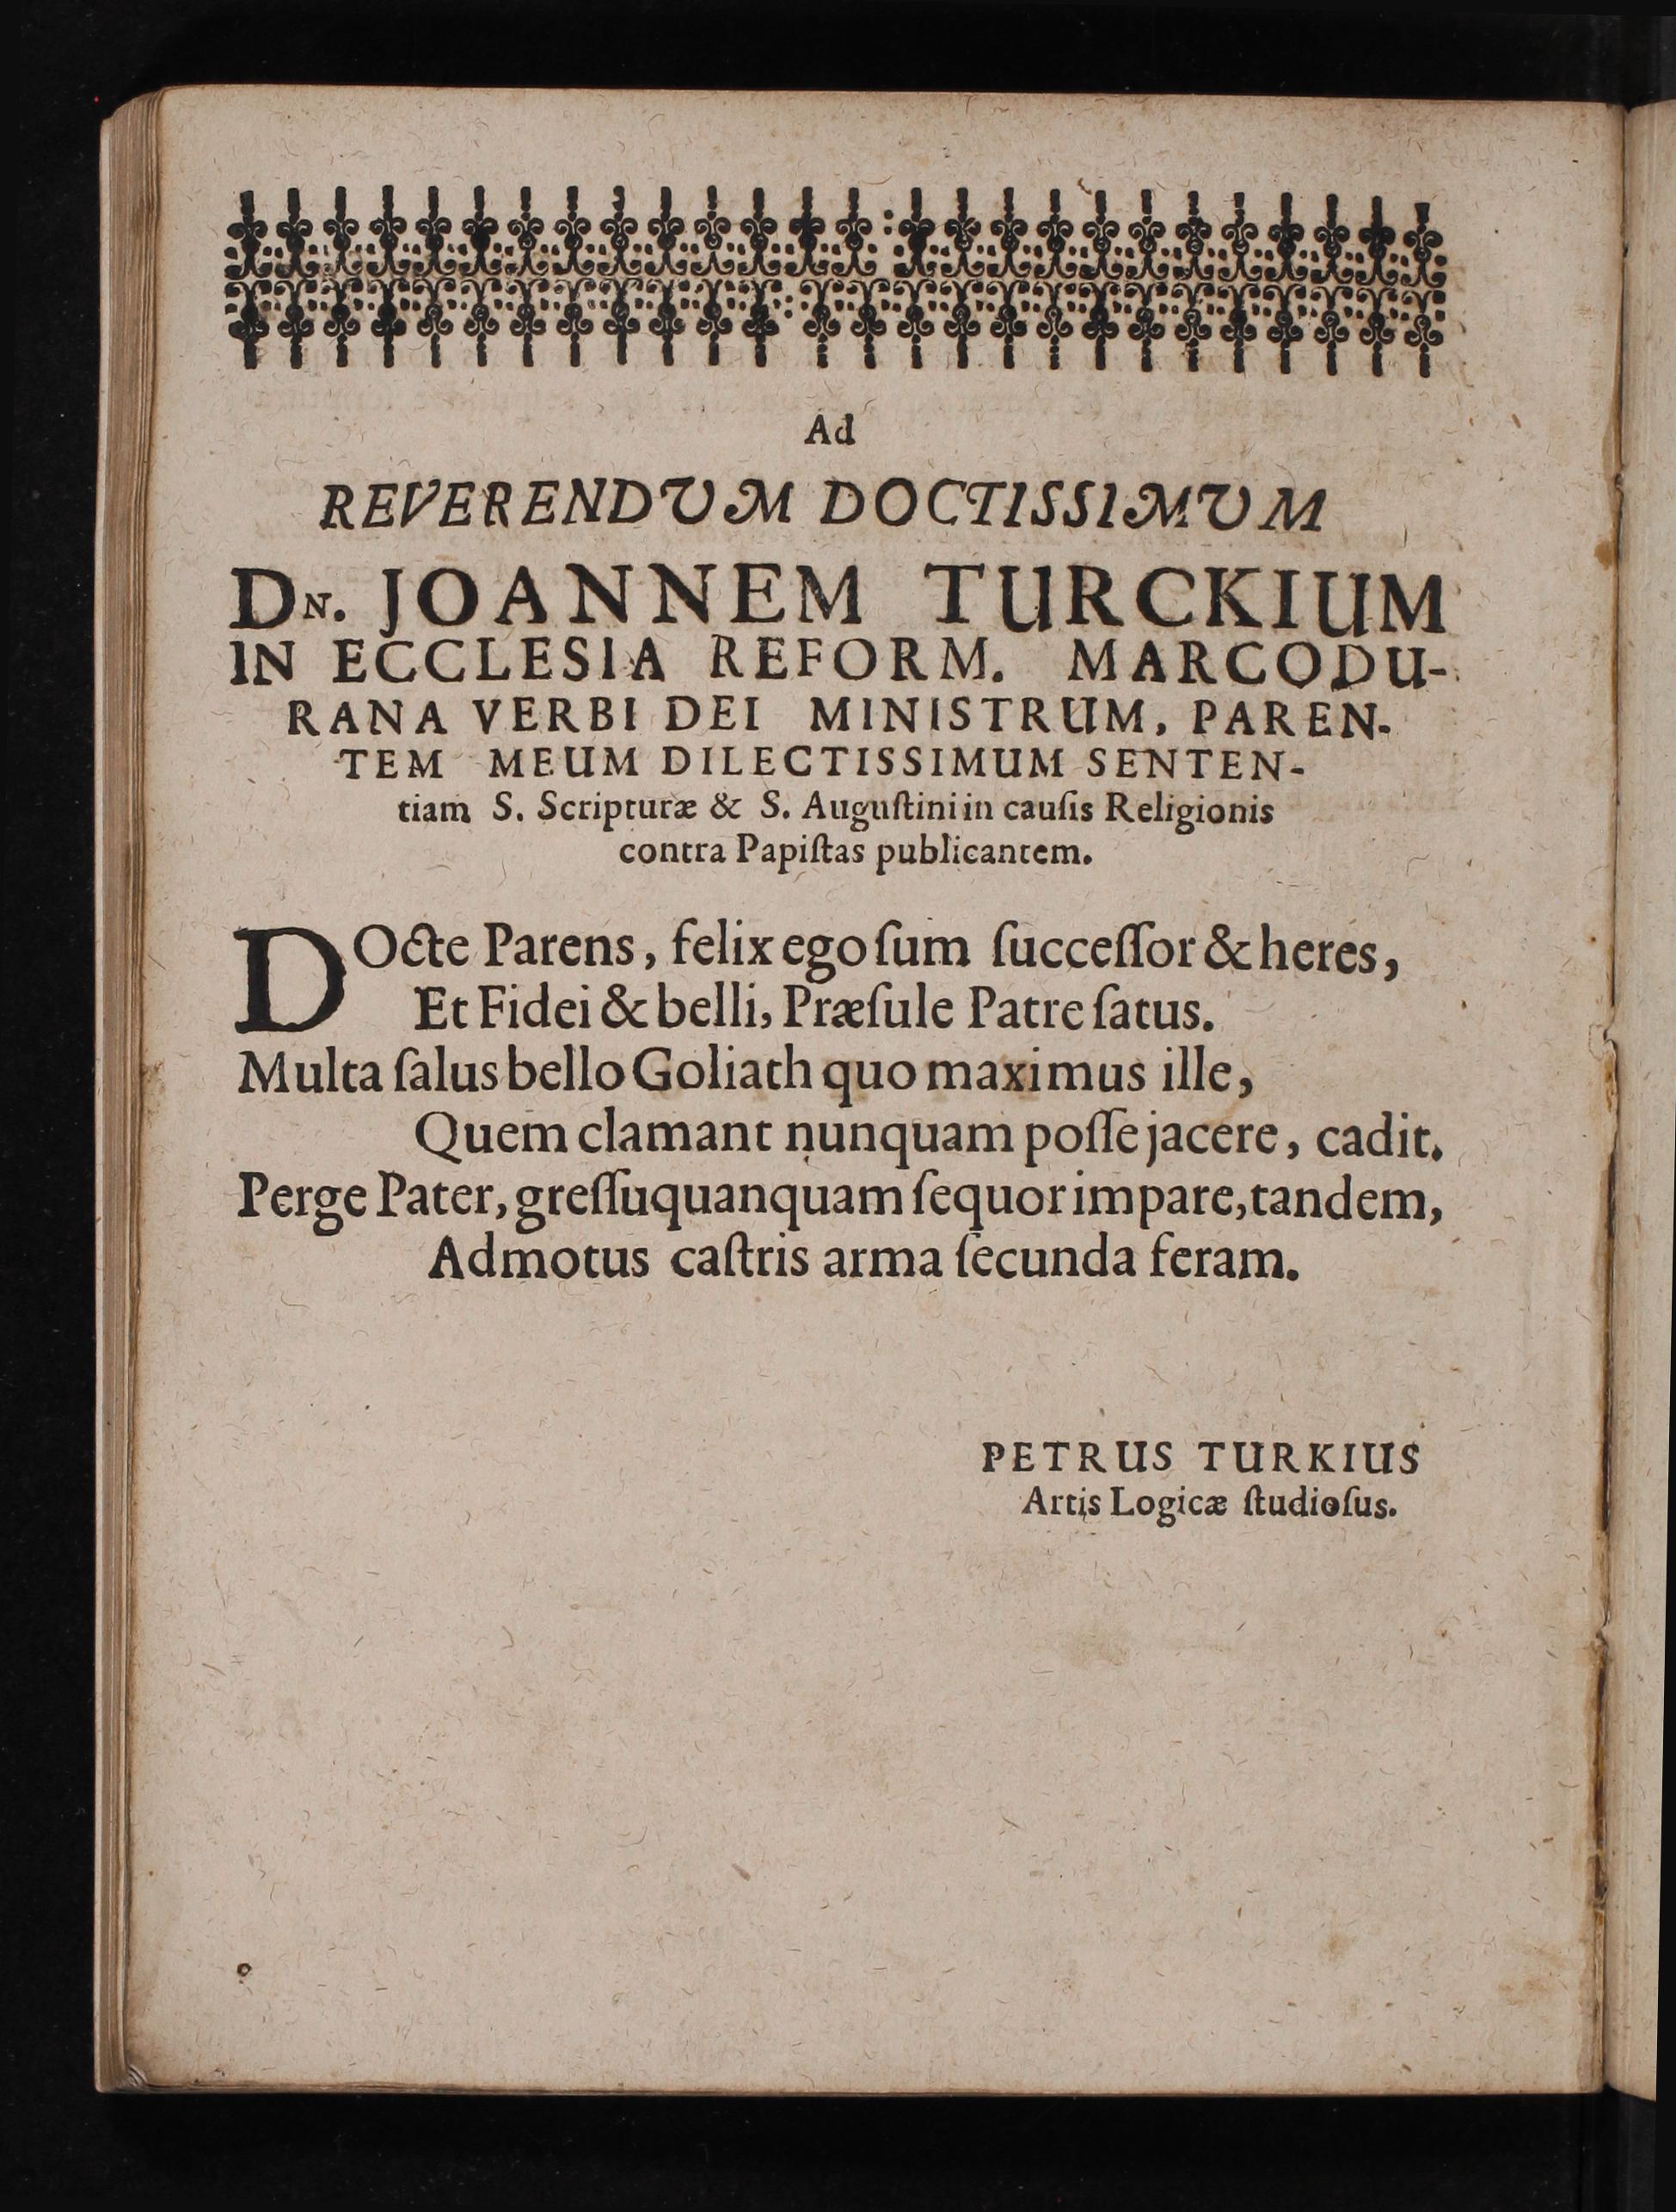 Ad
REVERENDVM DOCTISSIMVM
DN. JOANNEM TURCKIUM
IN ECCLESIA REFORM. MARCODU-
RANA VERBI DEI MINISTRUM, PAREN-
TEM MEUM DILECTISSIMUM SENTEN-
tiam S. Scripturæ & S. Auguſtini in cauſis Religionis
contra Papiſtas publicantem.
DOcte Parens, felix ego ſum ſucceſſor & heres,
Et Fidei & belli, Præſule Patre ſatus.
Multa ſalus bello Goliath quo maximus ille,
Quem clamant nunquam poſſe jacere, cadit.
Perge Pater, greſſu quanquam ſequor impare, tandem,
Admotus caſtris arma ſecunda feram.
PETRUS TURKIUS
Artis Logicæ ſtudioſus.